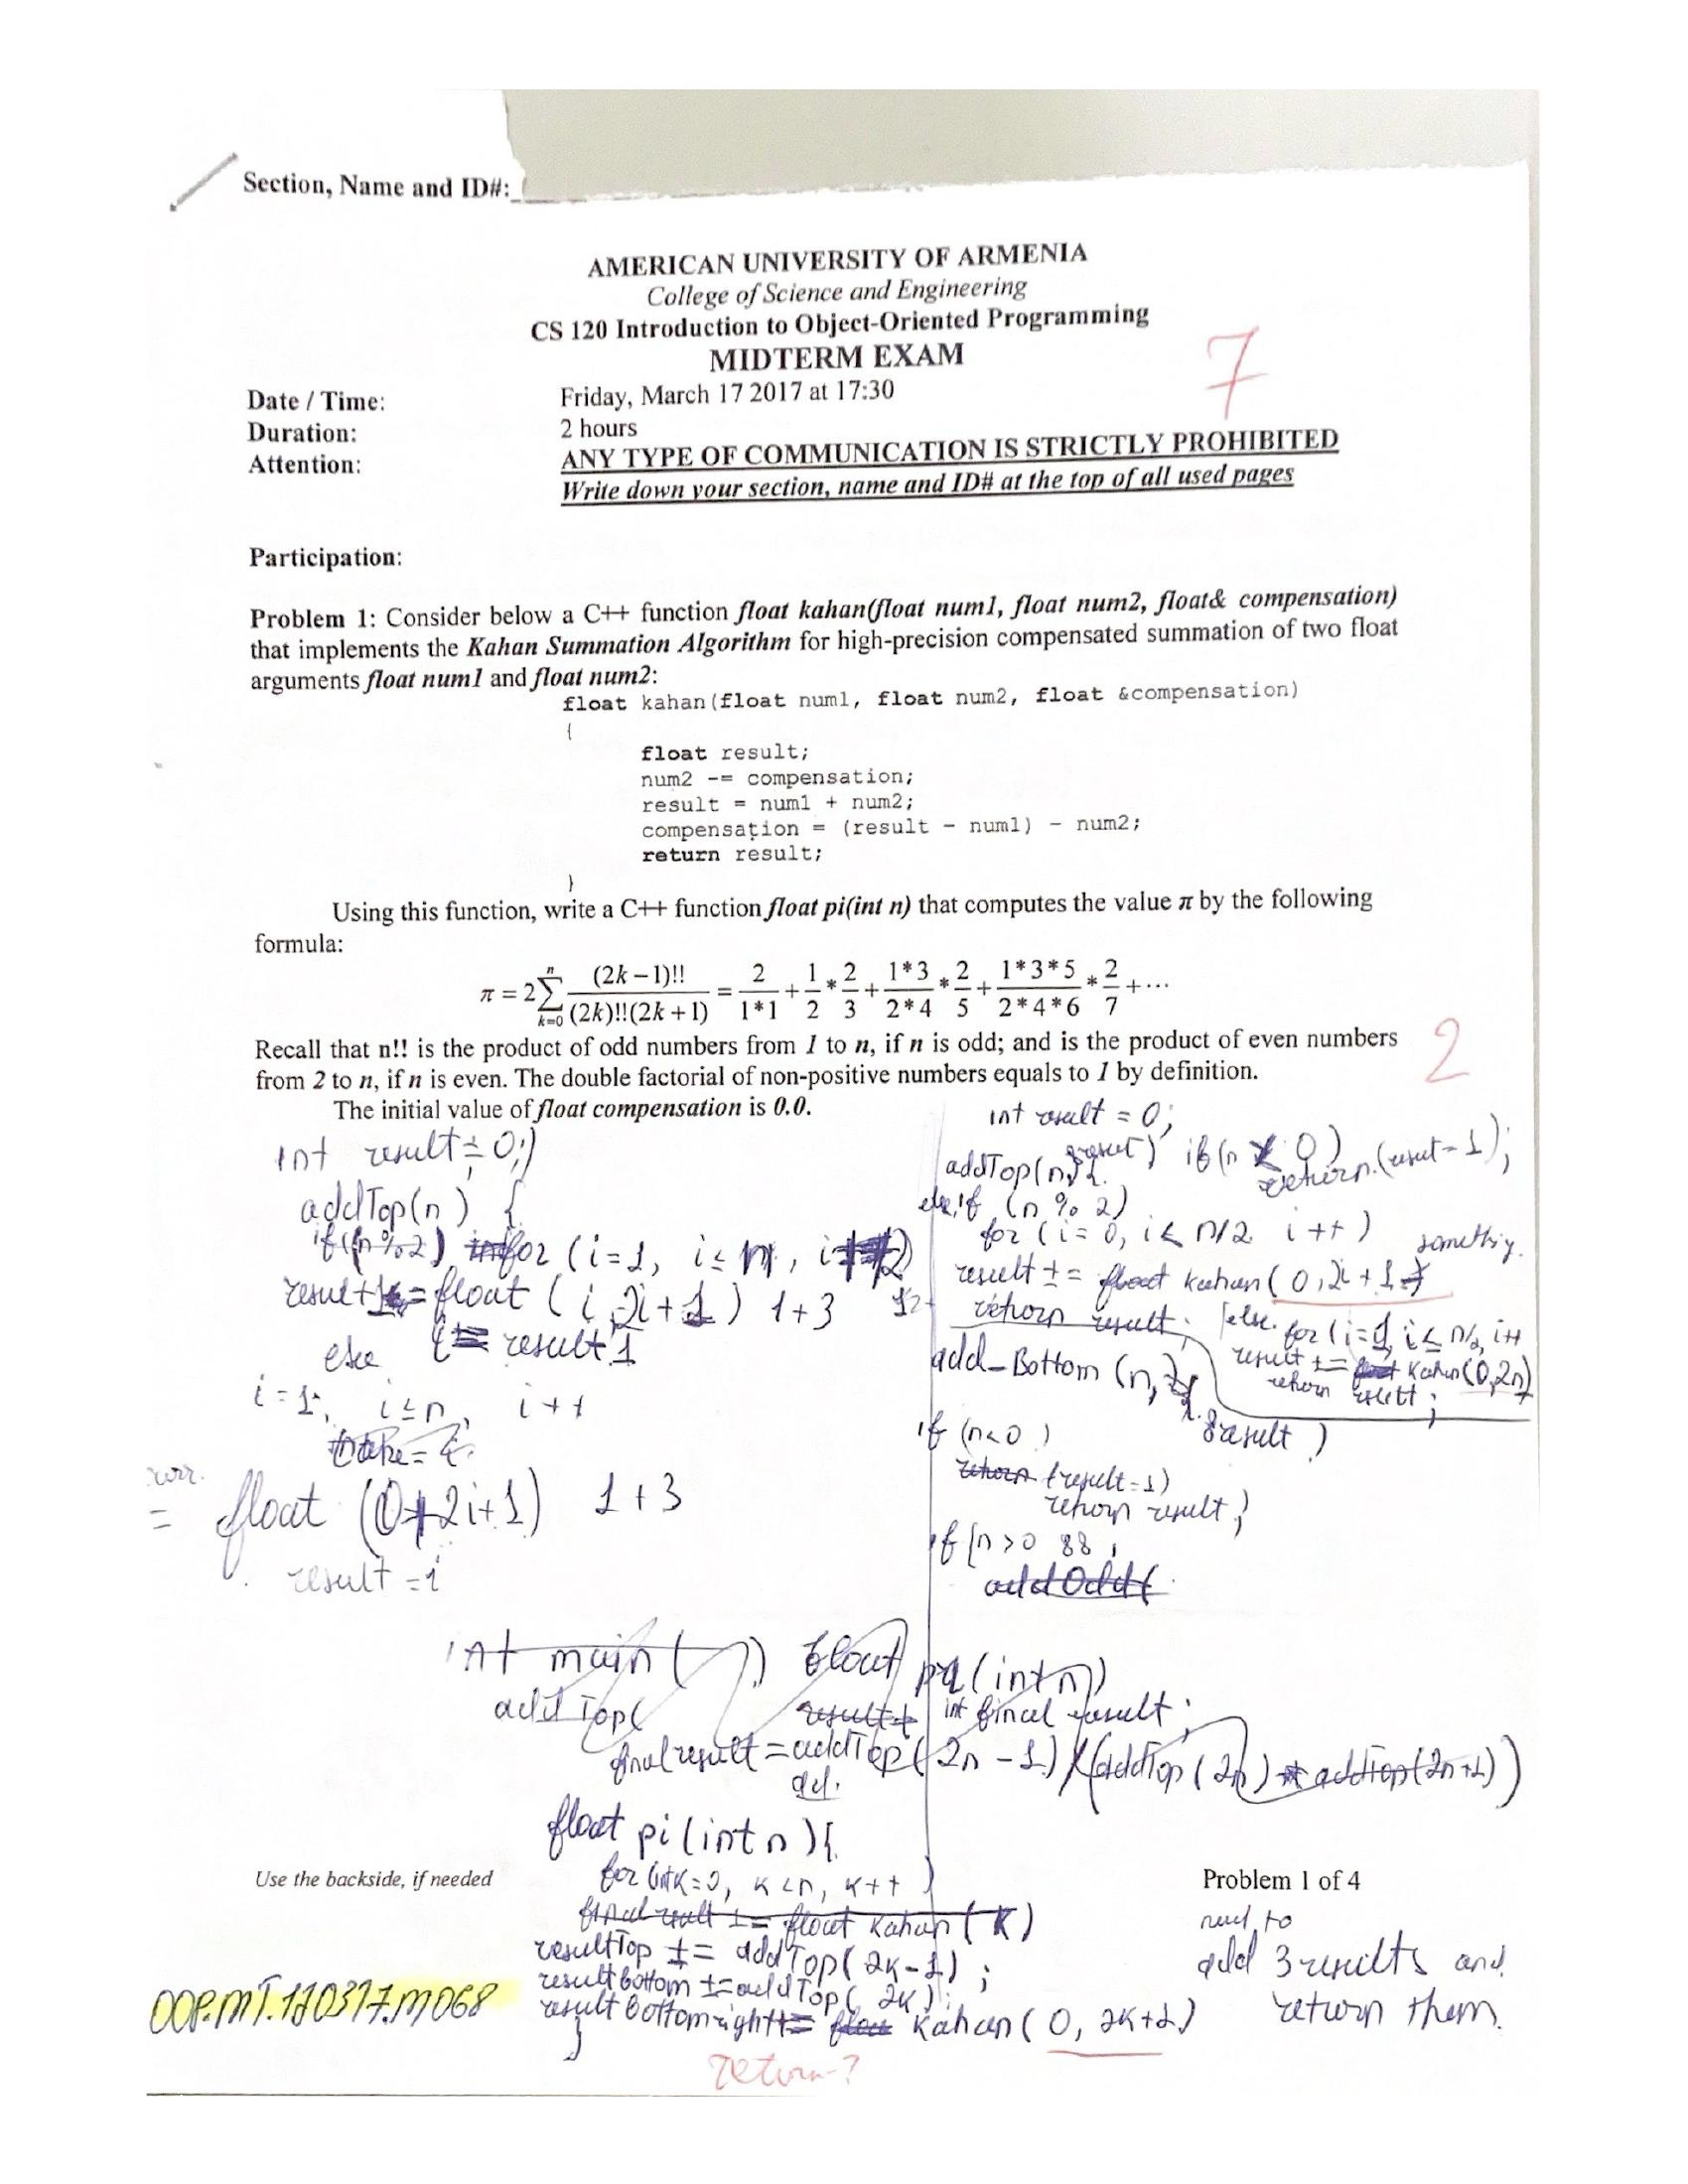 Section, Name and ID#:
AMERICAN UNIVERSITY OF ARMENIA
College of Science and Engineering
CS 120 Introduction to Object-Oriented Programming
MIDTERM EXAM
7
Date / Time: Friday, March 17 2017 at 17:30
Duration: 2 hours
Attention: ANY TYPE OF COMMUNICATION IS STRICTLY PROHIBITED
Write down your section, name and ID# at the top of all used pages
Participation:
Problem 1: Consider below a C++ function float kahan(float num1, float num2, float& compensation)
that implements the Kahan Summation Algorithm for high-precision compensated summation of two float
arguments float num1 and float num2:
float kahan(float num1, float num2, float &compensation)
{
float result;
num2 -= compensation;
result = num1 + num2;
compensation = (result - num1) - num2;
return result;
}
Using this function, write a C++ function float pi(int n) that computes the value π by the following
formula:
π = 2 ∑ n k=0 (2k−1)!! / (2k)!!(2k+1) = 2 / 1*1 + 1/2 * 2/3 + 1*3 / 2*4 * 2/5 + 1*3*5 / 2*4*6 * 2/7 + ...
Recall that n!! is the product of odd numbers from 1 to n, if n is odd; and is the product of even numbers
from 2 to n, if n is even. The double factorial of non-positive numbers equals to 1 by definition.
2
The initial value of float compensation is 0.0.
int result = 0;)
addTop(n) {
if(n%2) for (i=1, i≤n, i
result = float (i, 2i+1) 1+3
else result 1
i=1, i≤n, i++
= float (0 2i+1) 1+3
result = i
int result = 0;
addTop(n, result) if(n 0)
return (result = 1);
else if (n % 2)
for (i=0, i< n/2 i++)
result += float kahan(0, 2i+1
return result;
else for (i=1, i≤n/2, i++
result += kahan(0,2n)
return result;
add_Bottom (n,
result )
if (n<0 )
return (result=1)
return result;
if (n>0 &&
addOdd(
int main( ) float pi(int n)
addTop( result+ int final result;
final result = addTop(2n-1)/(addTop(2n) * addTop(2n+1))
float pi(int n){
for (int k=0, k<n, k++ )
final result += float kahan(k)
resultTop += addTop(2k-1);
result bottom += addTop(2k);
result bottomright += kahan(0, 2k+1)
}
return?
Use the backside, if needed
Problem 1 of 4
need to
add 3 results and
return them.
OOP.MT.170317.M068